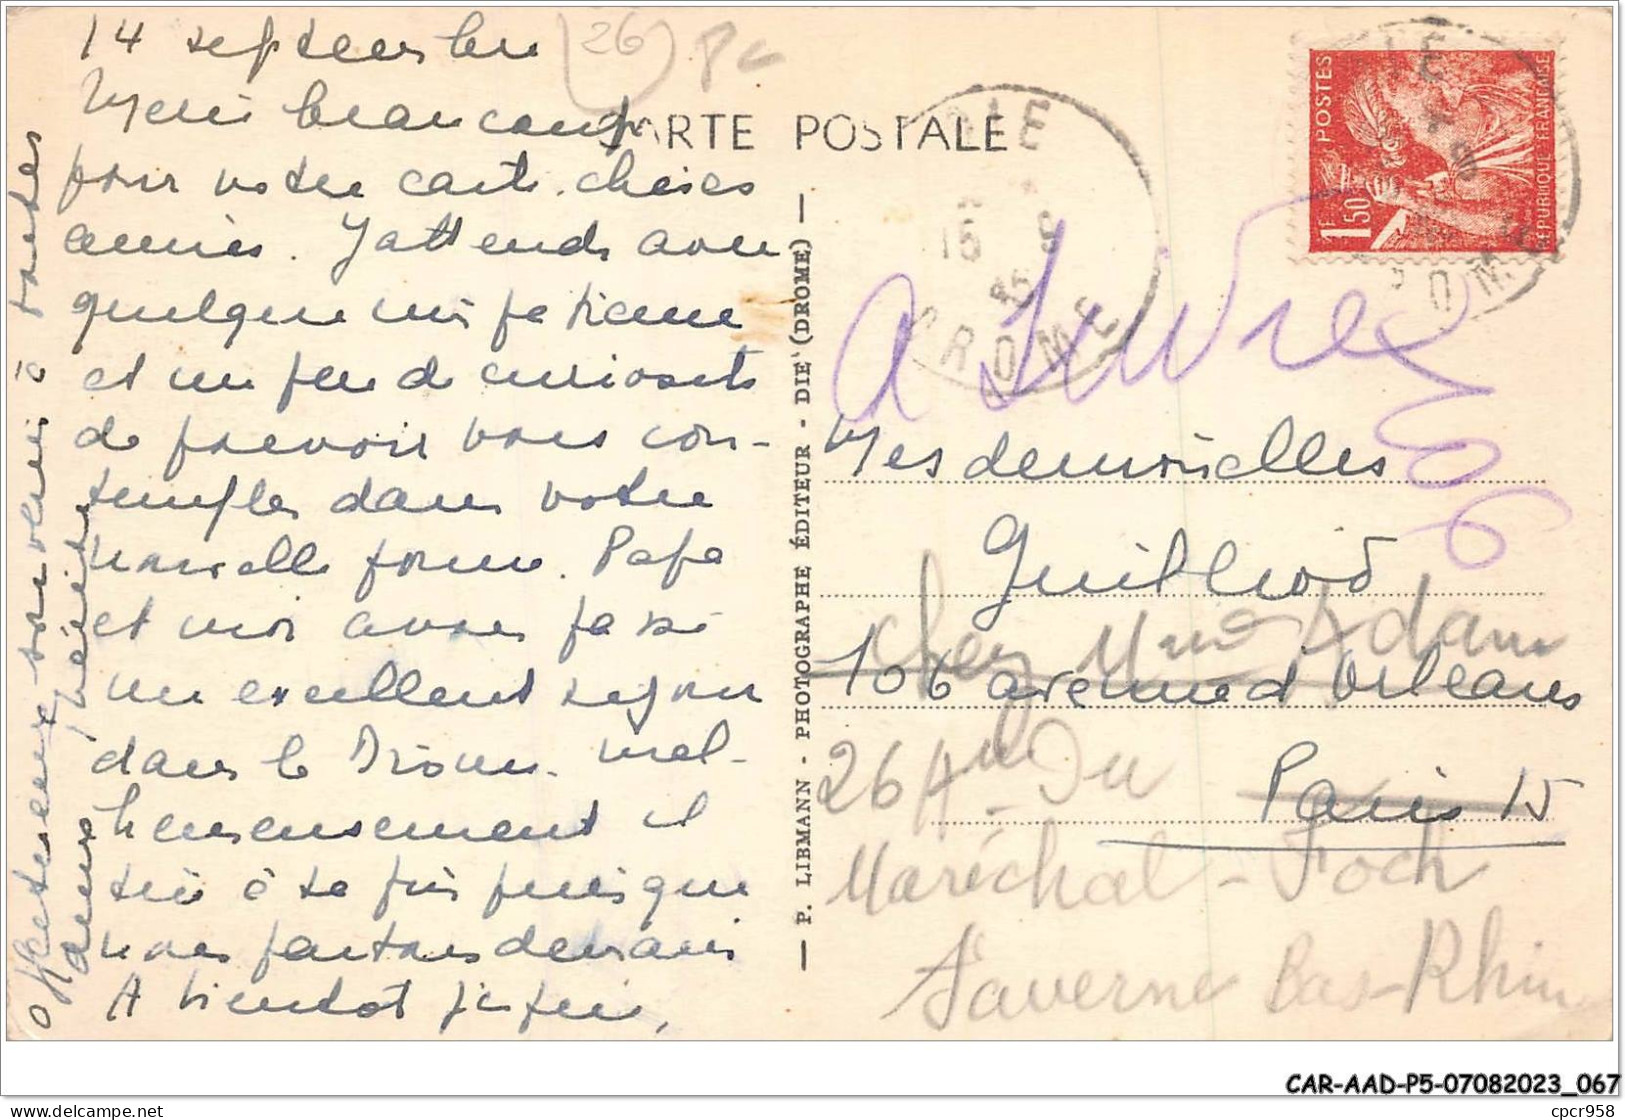 14 septembre
(26) Pc
Merci beaucoup
pour votre carte chères
amies. J'attends avec
quelque impatience
et un peu de curiosité
de pouvoir vous con-
templer dans votre
nouvelle forme. Papa
et moi avons passé
un excellent séjour
dans la Drôme. Mal-
heureusement il
tire à sa fin puisque
nous partons demain
A bientôt j'espère,
Affectueux souvenir à toutes
deux
CARTE POSTALE
P. LIBMANN - PHOTOGRAPHE ÉDITEUR - DIE (DROME)
DIE
15 9
45
DROME
POSTES
1F50
RÉPUBLIQUE FRANÇAISE
A suivre
Mesdemoiselles
Guilliod
chez Mme Adam
106 avenue d'Orléans
26 Du
Paris 15
Maréchal-Foch
Saverne Bas-Rhin
CAR-AAD-P5-07082023_067
www.delcampe.net
cpcr958